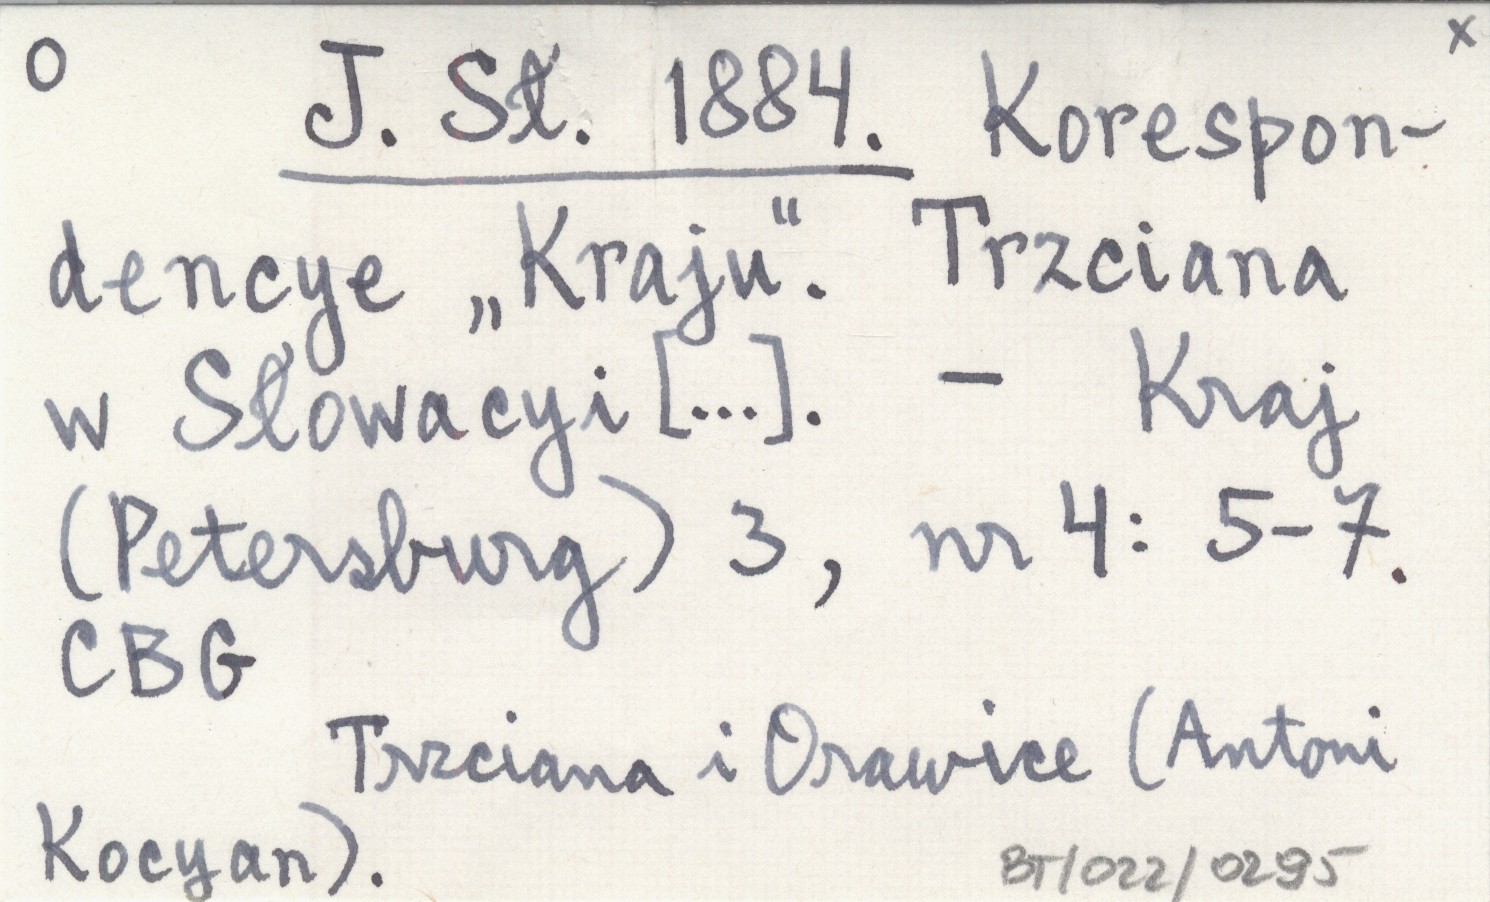 O x
J. Sł. 1884. Korespon-
dencye „Kraju“. Trzciana
w Słowacyi [...]. – Kraj
(Petersburg) 3, nr 4: 5-7.
CBG
Trzciana i Orawice (Antoni
Kocyan).
BT/022/0295